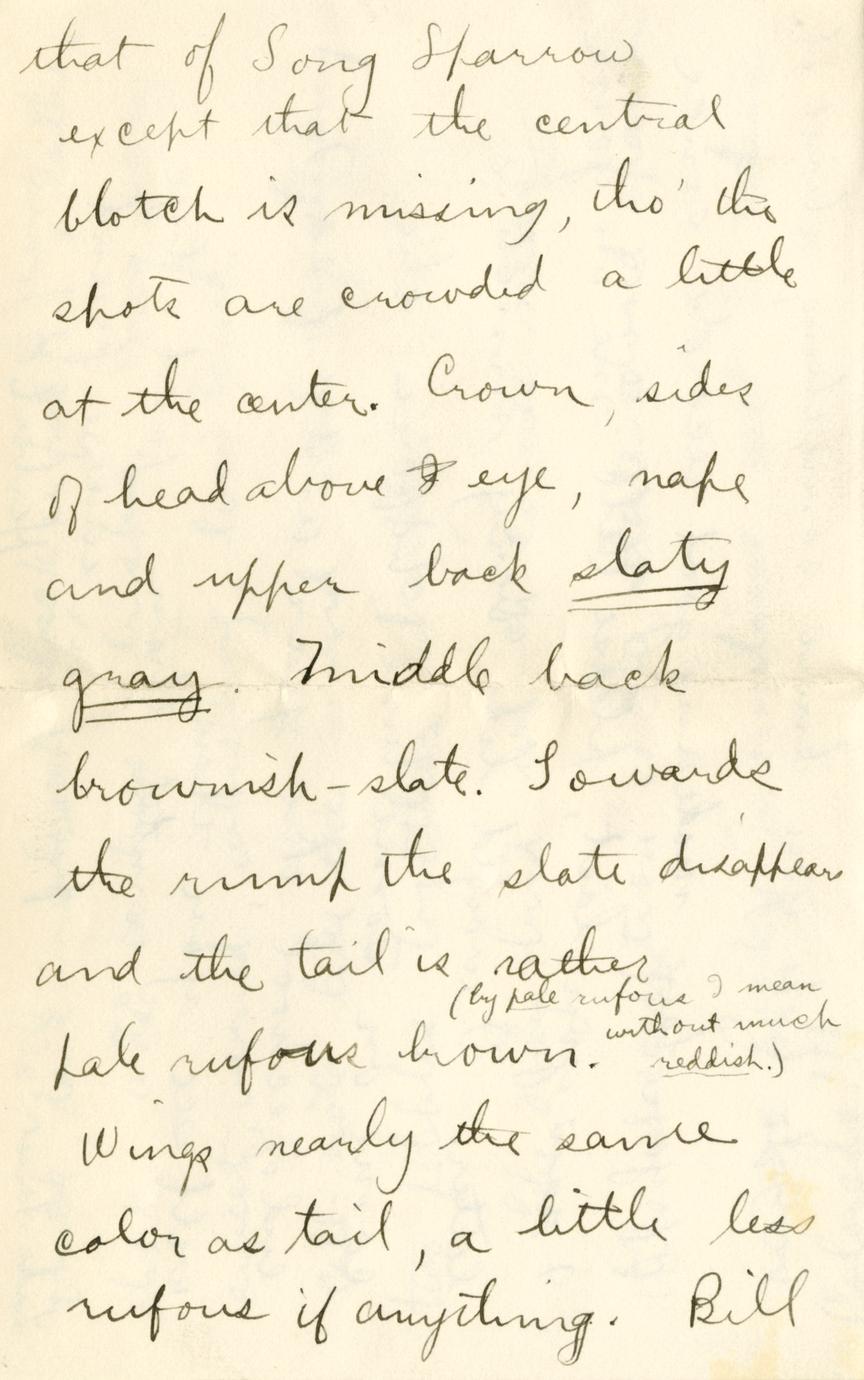 that of Song Sparrow
except that the central
blotch is missing, tho' the
spots are crowded a little
at the center. Crown, sides
of head above eye, nape
and upper back slaty
gray. Middle back
brownish-slate. Towards
the rump the slate disappears
and the tail is rather
(by pale rufous I mean
without much
reddish.)
pale rufous brown.
Wings nearly the same
color as tail, a little less
rufous if anything. Bill